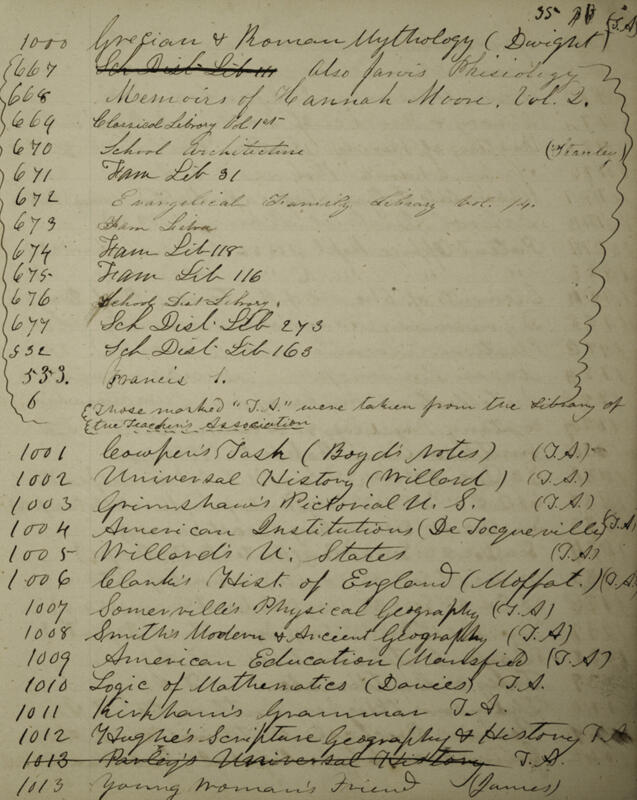 35
1000 Grecian & Roman Mythology (Dwight) (T.A)
667 Sch Dist Lib 111 Also Jarvis Phisiology
668 Memoirs of Hannah Moore. Vol 2.
669 Classical Library Vol 1st
670 School Architecture
671 Fam Lib 31
672 Evangelical Family Library Vol. 14.
673 Fam
674 Fam Lib 118
675 Fam Lib 116
676 School Dist Library.
677 Sch Dist Lib 273
532 Sch Dist Lib 163
533. Francis 1.
6 Those marked "T.A." were taken from the Library of
the Teacher's Association
1001 Cowper's Task (Boyd's Notes) (T.A)
1002 Universal History (Willard) (T.A.)
1003 Grimshaw's Pictorial U. S. (T.A.)
1004 American Institutions (De Tocqueville) (T.A)
1005 Willard's U. States (T.A)
1006 Clark's Hist. of England (Moffat.) (T.A)
1007 Somerville's Physical Geography (T.A)
1008 Smith's Modern & Ancient Geography (T.A)
1009 American Education (Mansfield) (T.A)
1010 Logic of Mathematics (Davies) T.A.
1011 Kirkham's Grammar T.A.
1012 Hughe's Scripture Geography & History T.A
1013 Parley's Universal History T.A.
1013 Young Woman's Friend (James)